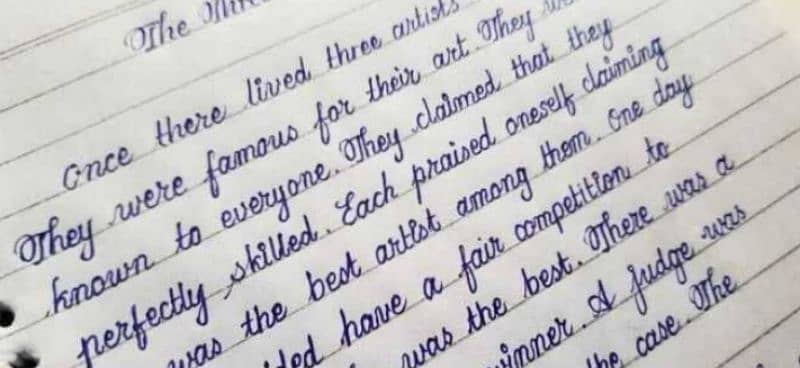 The
Once there lived three artists
They were famous for their art. They
known to everyone. They claimed that they
perfectly skilled. Each praised oneself claiming
was the best artist among them. One day
have a fair competition to
was the best. There was a
winner. A judge was
the case. The